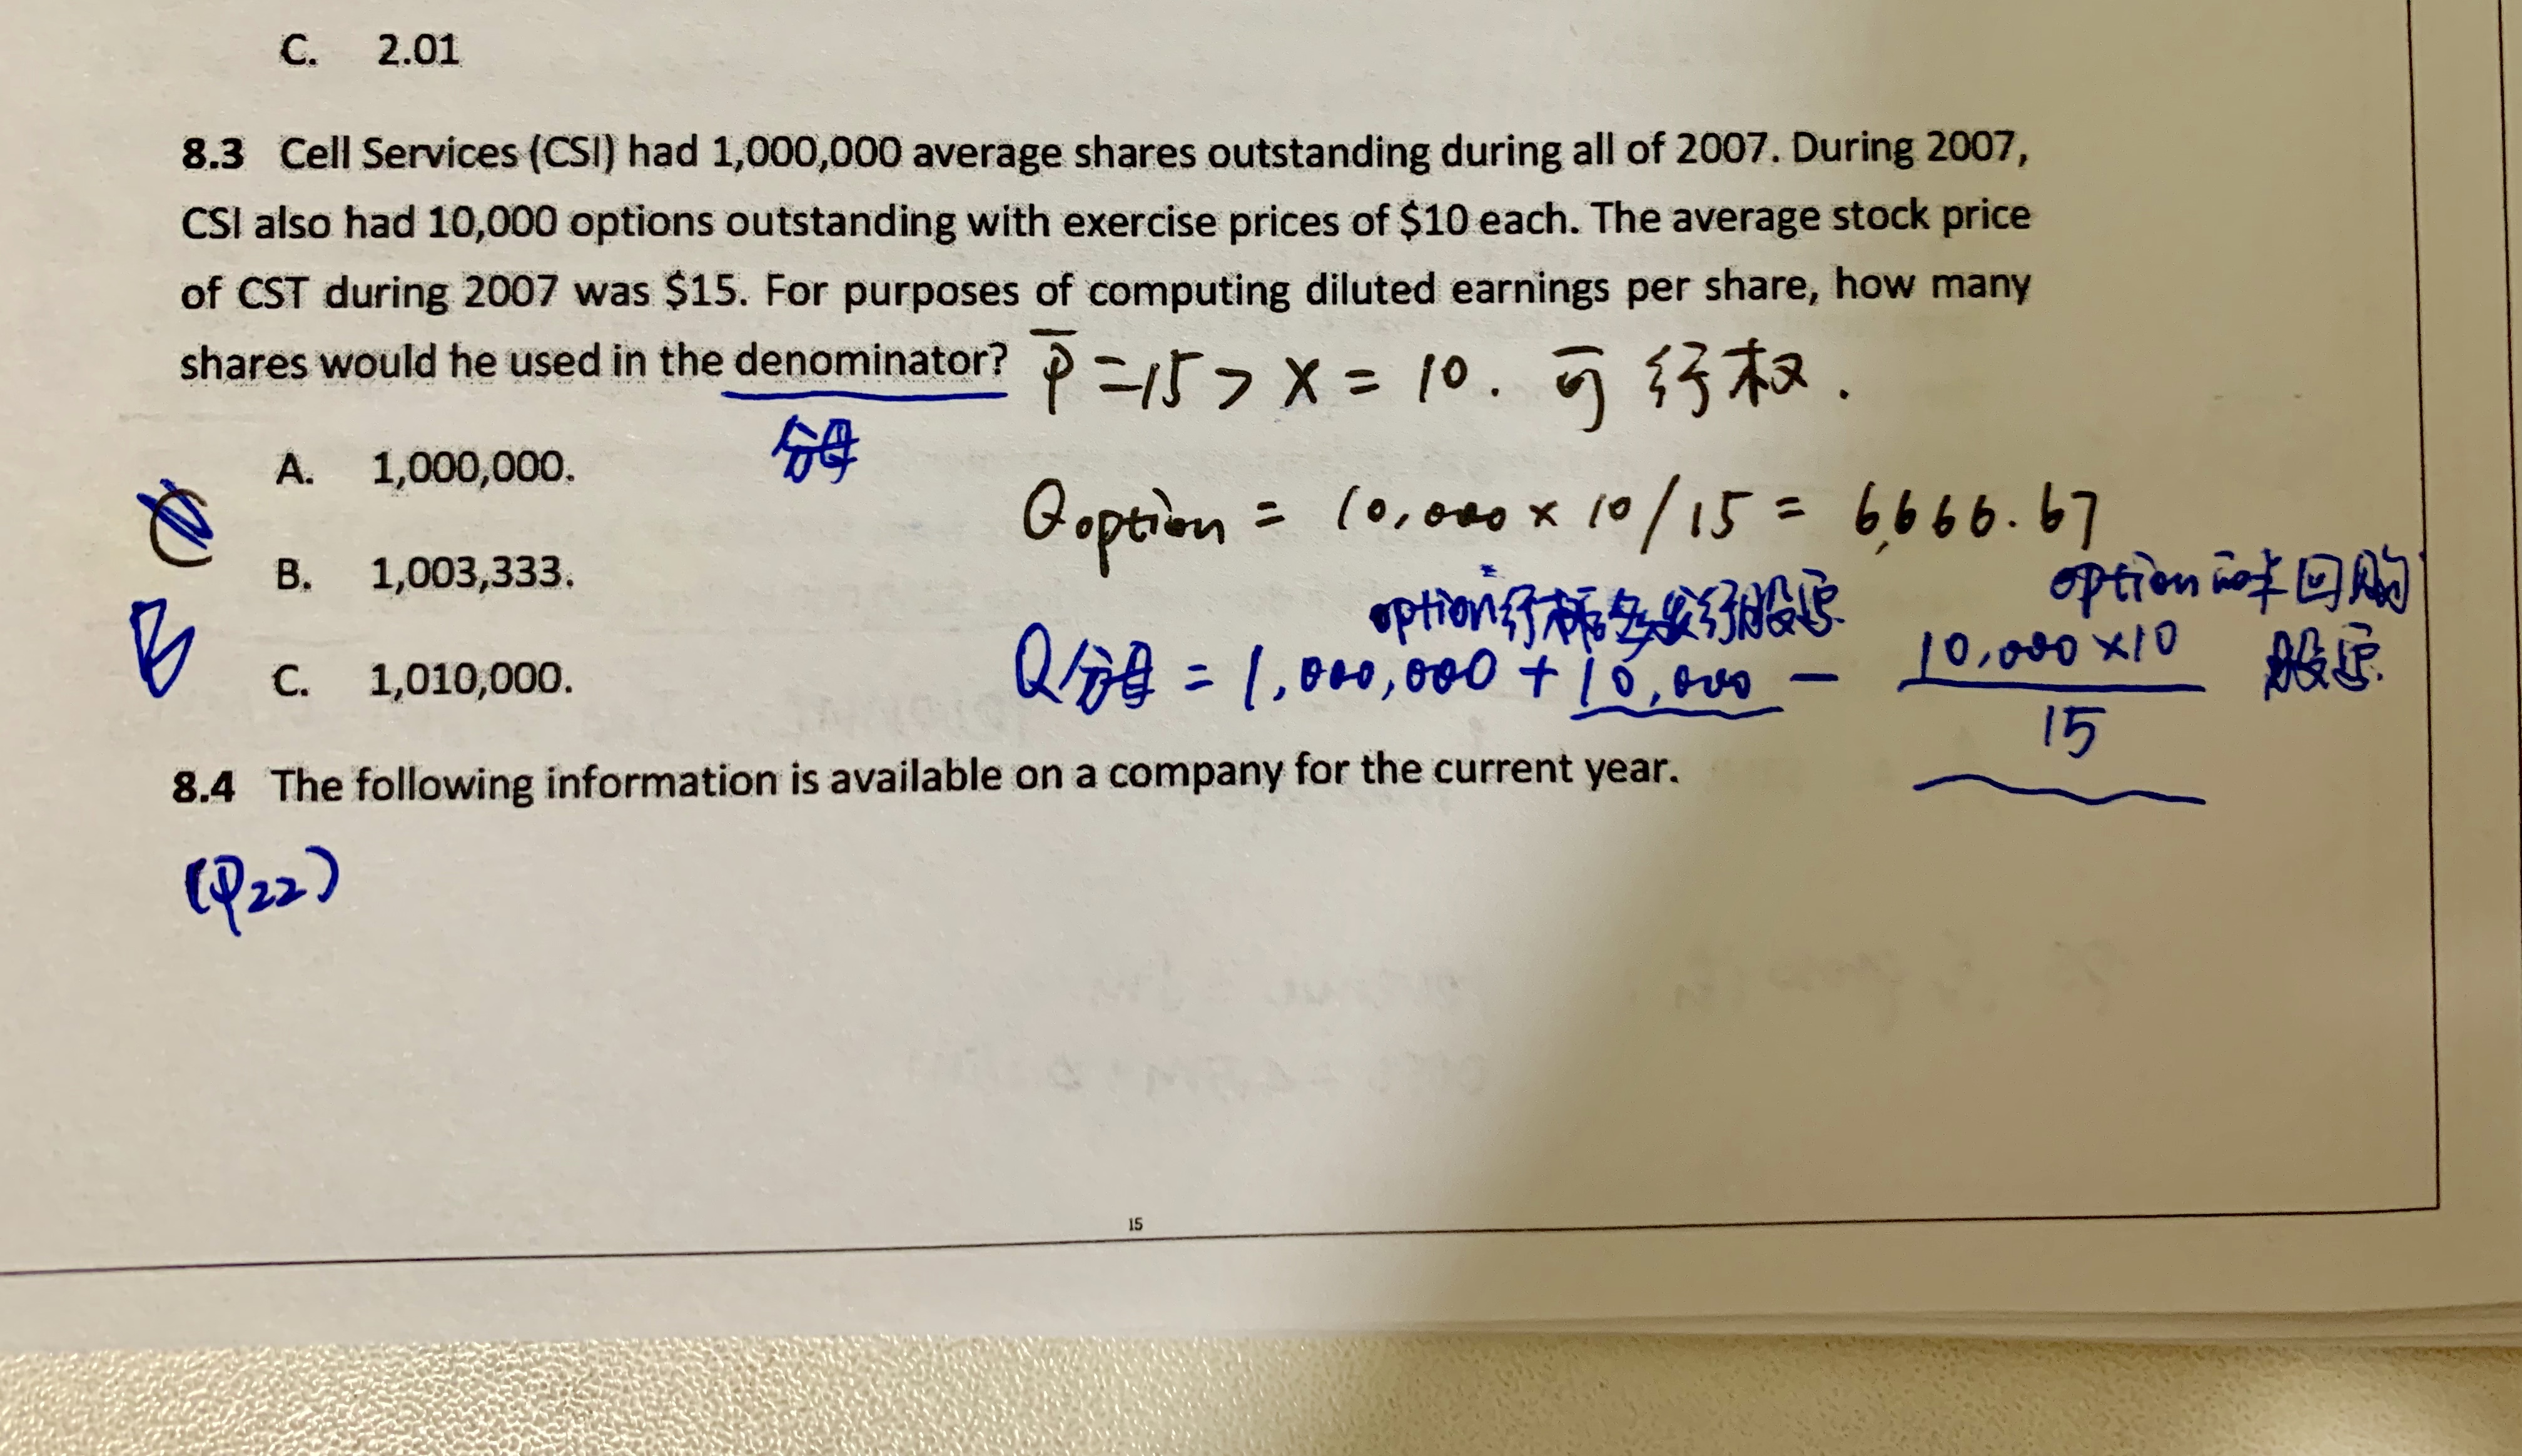 C. 2.01
8.3 Cell Services (CSI) had 1,000,000 average shares outstanding during all of 2007. During 2007,
CSI also had 10,000 options outstanding with exercise prices of $10 each. The average stock price
of CST during 2007 was $15. For purposes of computing diluted earnings per share, how many
shares would he used in the denominator? P̅ = 15 > X = 10. 可行权.
分母
A. 1,000,000.
C
Qoption = 10,000 × 10/15 = 6,666.67
B. 1,003,333.
option行权后发行股票. option回购
股票.
B
Q分母 = 1,000,000 + 10,000 − 10,000 × 10
15
C. 1,010,000.
8.4 The following information is available on a company for the current year.
(P22)
15